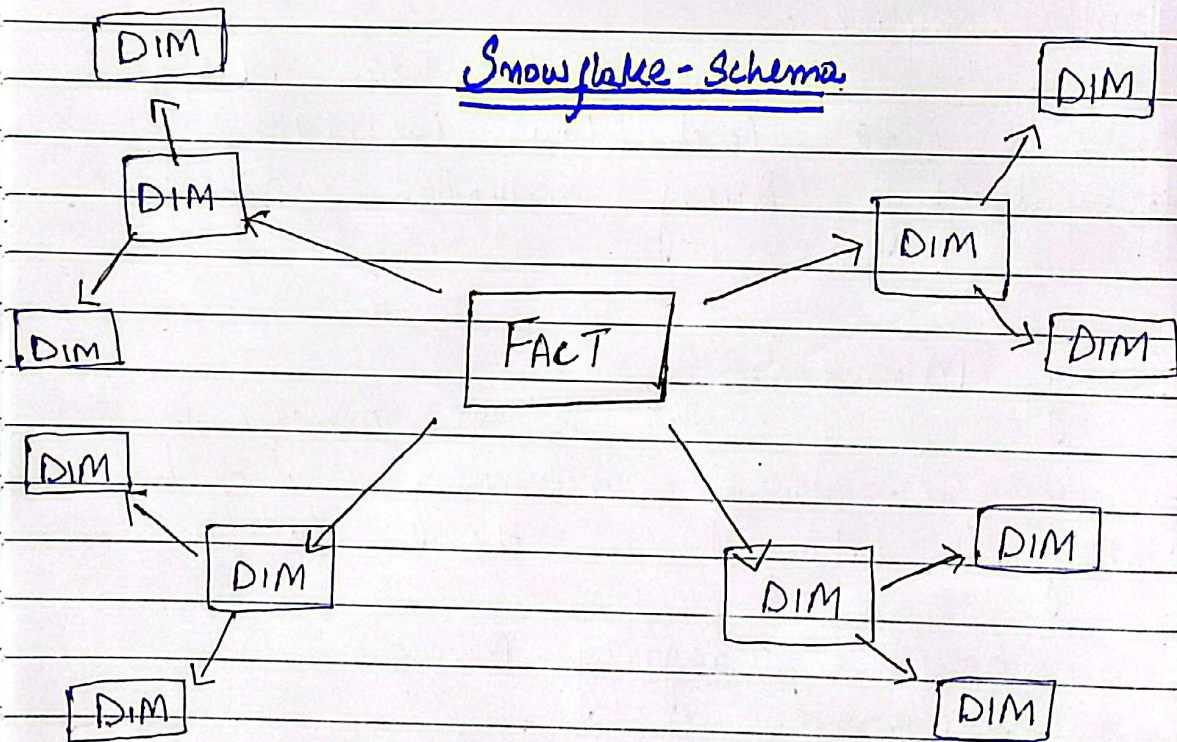 DIM
Snowflake-Schema
DIM
DIM
DIM
FACT
DIM
DIM
DIM
DIM
DIM
DIM
DIM
DIM